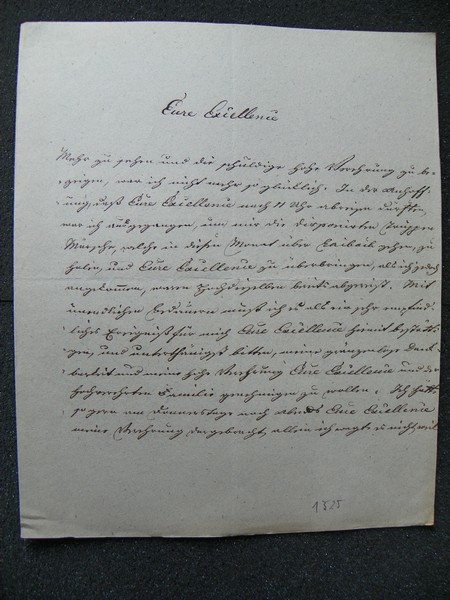 Eure Excellence
Mehr zu sehen und die schuldige hohe Verehrung zu be-
zeigen, war ich nicht mehr so glücklich. In der Anhoff-
ung, daß Eure Excellence nach 11 Uhr abreisen dürften,
war ich ausgegangen, um mir die disponirten Truppen
Märsche, welche in diesem Monat über Laibach gehen, zu
holen, und Eure Excellence zu überbringen, als ich jedoch
angekommen, waren Hochdieselben bereits abgereist. Mit
unendlichen Bedauern muß ich es als ein sehr empfind-
liches Ereigniß für mich Eure Excellence hiemit bestätti-
gen, und unterthänigst bitten, meine gränzenlose Dank-
barkeit und meine hohe Verehrung Eure Excellence und der
hochverehrten Familie genehmigen zu wollen. Ich hätte
so gern am Donnerstage noch abends Eure Excellence
meine Verehrung dargebracht, allein ich wagte es nicht, weil
1825